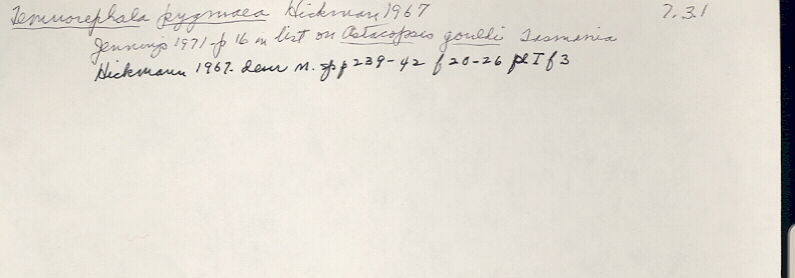 Temnocephala pygmaea Hickman, 1967 7.3.1
Jennings 1971-p 16 in list on Astacopsis gouldi Tasmania
Hickmann 1967. descr n. sp p 239-42 f 20-26 pl I f 3